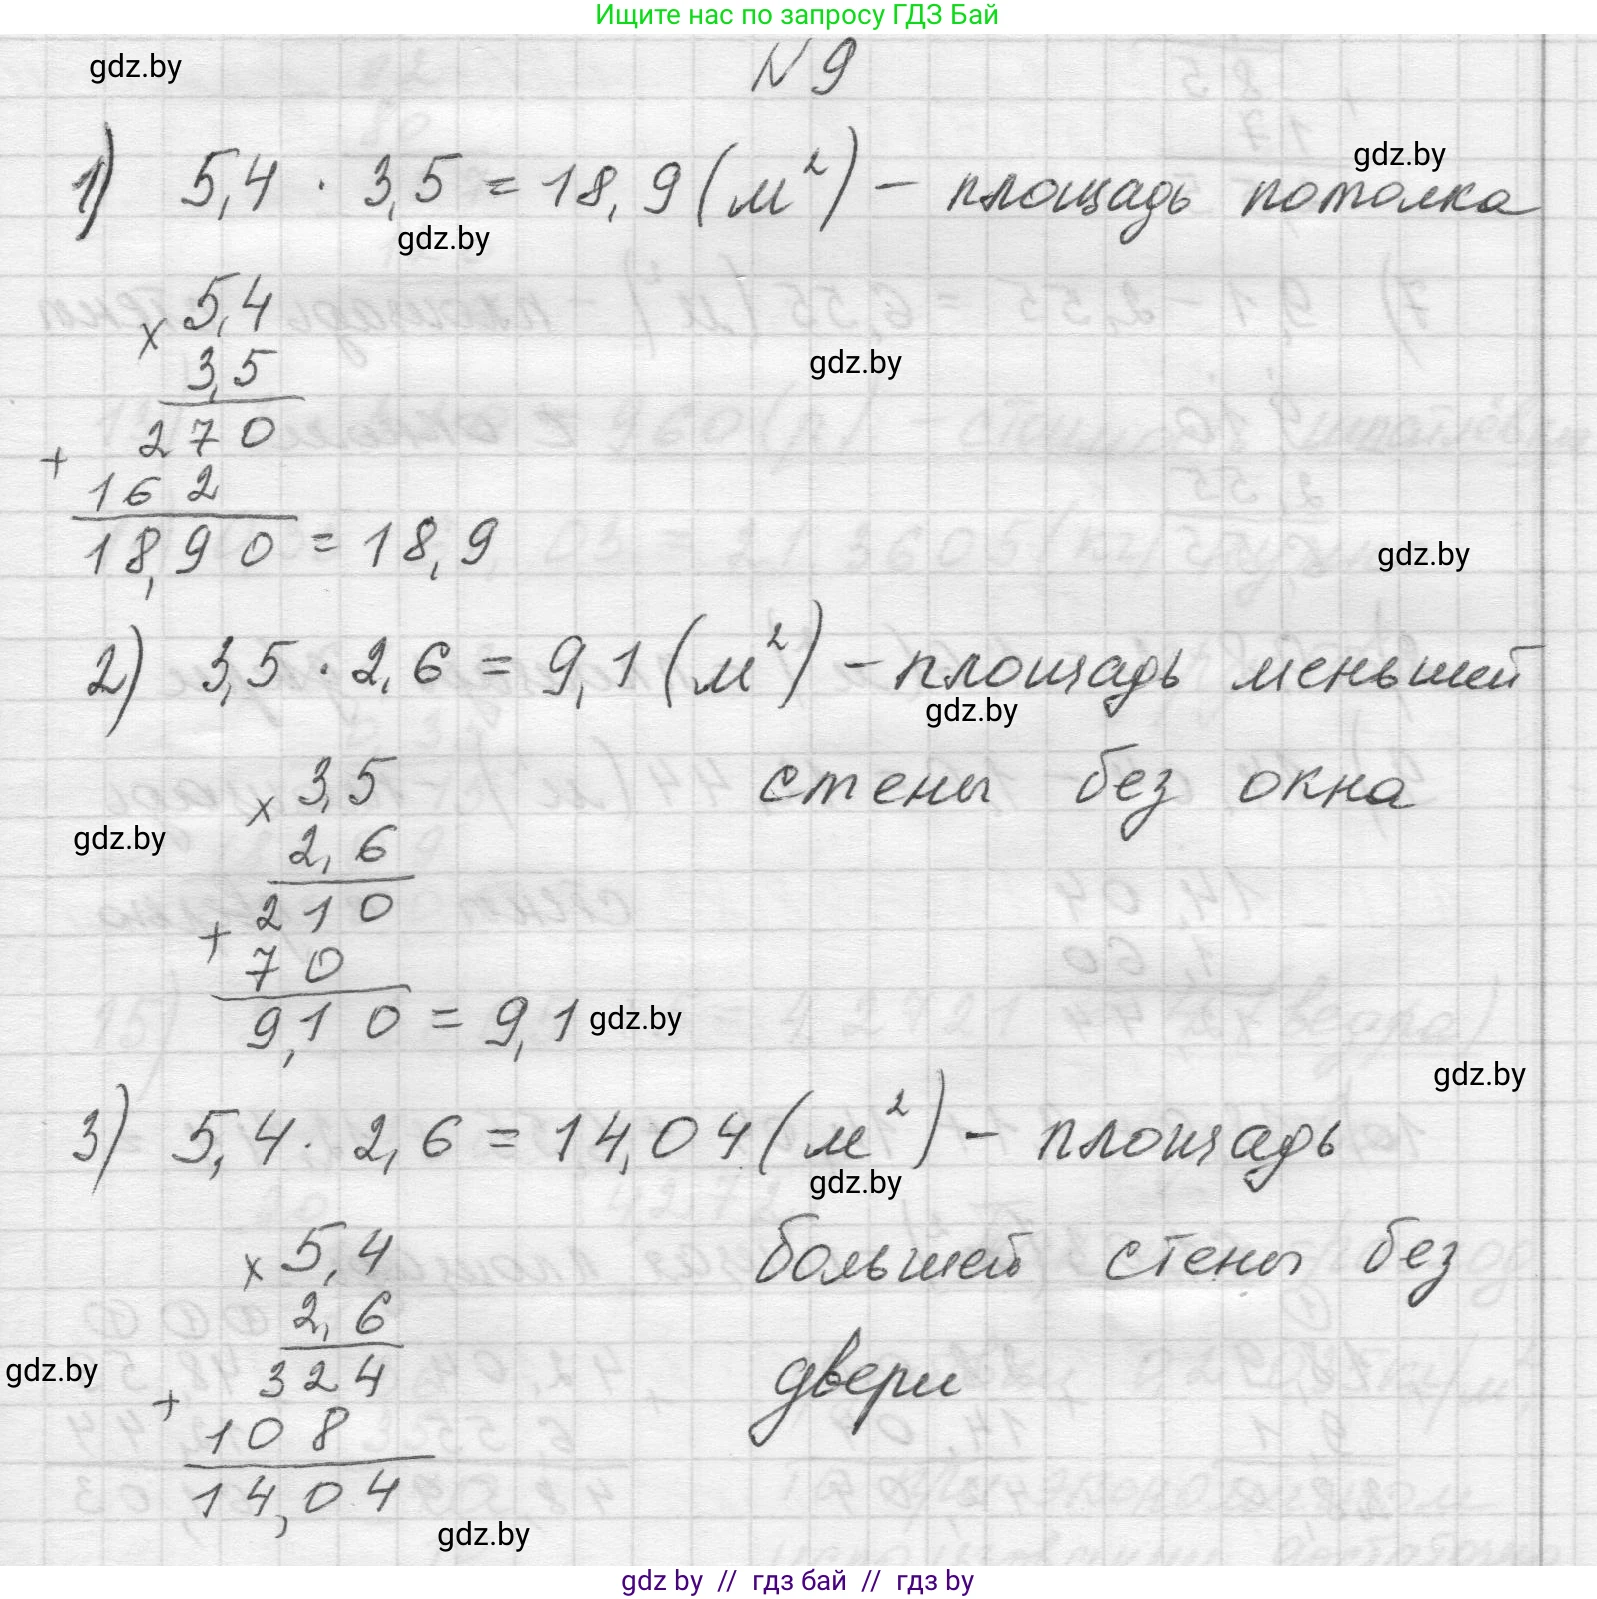 Ищите нас по запросу ГДЗ Бай
gdz.by
N 9
gdz.by
1) 5,4 · 3,5 = 18,9 (м²) – площадь потолка
gdz.by
× 5,4
3,5
gdz.by
270
+
162
18,90 = 18,9
gdz.by
2) 3,5 · 2,6 = 9,1 (м²) – площадь меньшей
gdz.by
стены без окна
× 3,5
gdz.by
2,6
210
+
70
9,10 = 9,1
gdz.by
gdz.by
3) 5,4 · 2,6 = 14,04 (м²) – площадь
gdz.by
большей стены без
двери
× 5,4
2,6
gdz.by
324
+
108
14,04
gdz.by
gdz by // гдз бай // гдз by